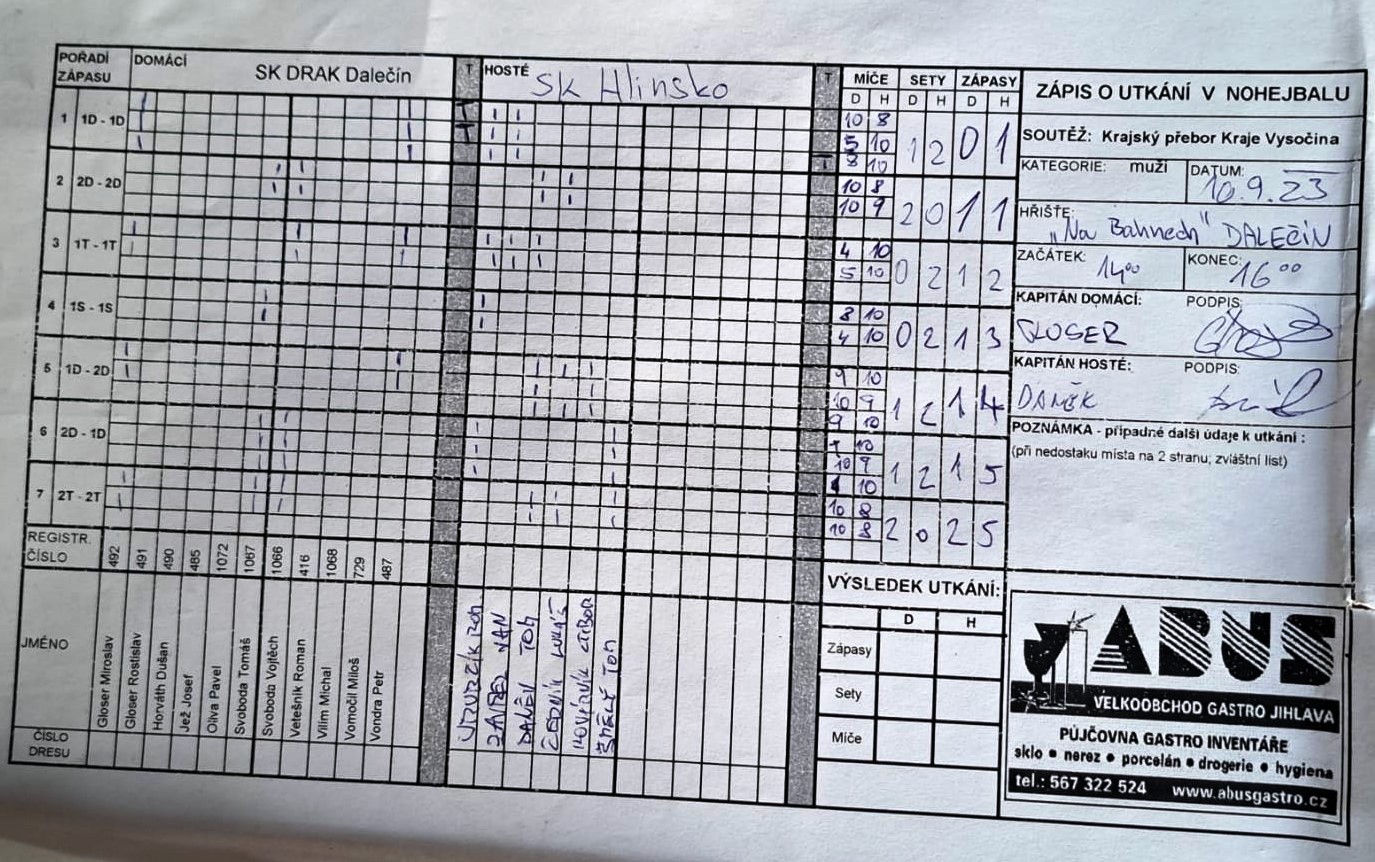 POŘADÍ ZÁPASU DOMÁCÍ SK DRAK Dalečín T HOSTÉ SK Hlinsko T MÍČE SETY ZÁPASY
D H D H D H
1 1D - 1D 10 8 1 2 0 1
5 10
8 10
2 2D - 2D 10 8 2 0 1 1
10 9
3 1T - 1T 4 10 0 2 1 2
5 10
4 1S - 1S 8 10 0 2 1 3
4 10
5 1D - 2D 9 10 1 2 1 4
10 9
9 10
6 2D - 1D 10 1 2 1 5
10 9
10
7 2T - 2T 10 8 2 0 2 5
10 8
REGISTR. ČÍSLO 492 491 490 485 1072 1067 1066 416 1068 729 487
JMÉNO
Gloser Miroslav
Gloser Rostislav
Horváth Dušan
Jež Josef
Oliva Pavel
Svoboda Tomáš
Svoboda Vojtěch
Vetešník Roman
Vilím Michal
Vomočil Miloš
Vondra Petr
JAN
DANĚK TOM
LUKÁŠ
LIBOR
TOM
ČÍSLO DRESU
VÝSLEDEK UTKÁNÍ:
D H
Zápasy
Sety
Míče
ZÁPIS O UTKÁNÍ V NOHEJBALU
SOUTĚŽ: Krajský přebor Kraje Vysočina
KATEGORIE: muži DATUM: 10.9.23
HŘIŠTĚ: „Na Bahnech" DALEČÍN
ZAČÁTEK: 14⁰⁰ KONEC: 16⁰⁰
KAPITÁN DOMÁCÍ: PODPIS:
GLOSER
KAPITÁN HOSTÉ: PODPIS:
DANĚK
POZNÁMKA - případné další údaje k utkání :
(při nedostaku místa na 2 stranu; zvláštní list)
ABUS
VELKOOBCHOD GASTRO JIHLAVA
PŮJČOVNA GASTRO INVENTÁŘE
sklo • nerez • porcelán • drogerie • hygiena
tel.: 567 322 524 www.abusgastro.cz